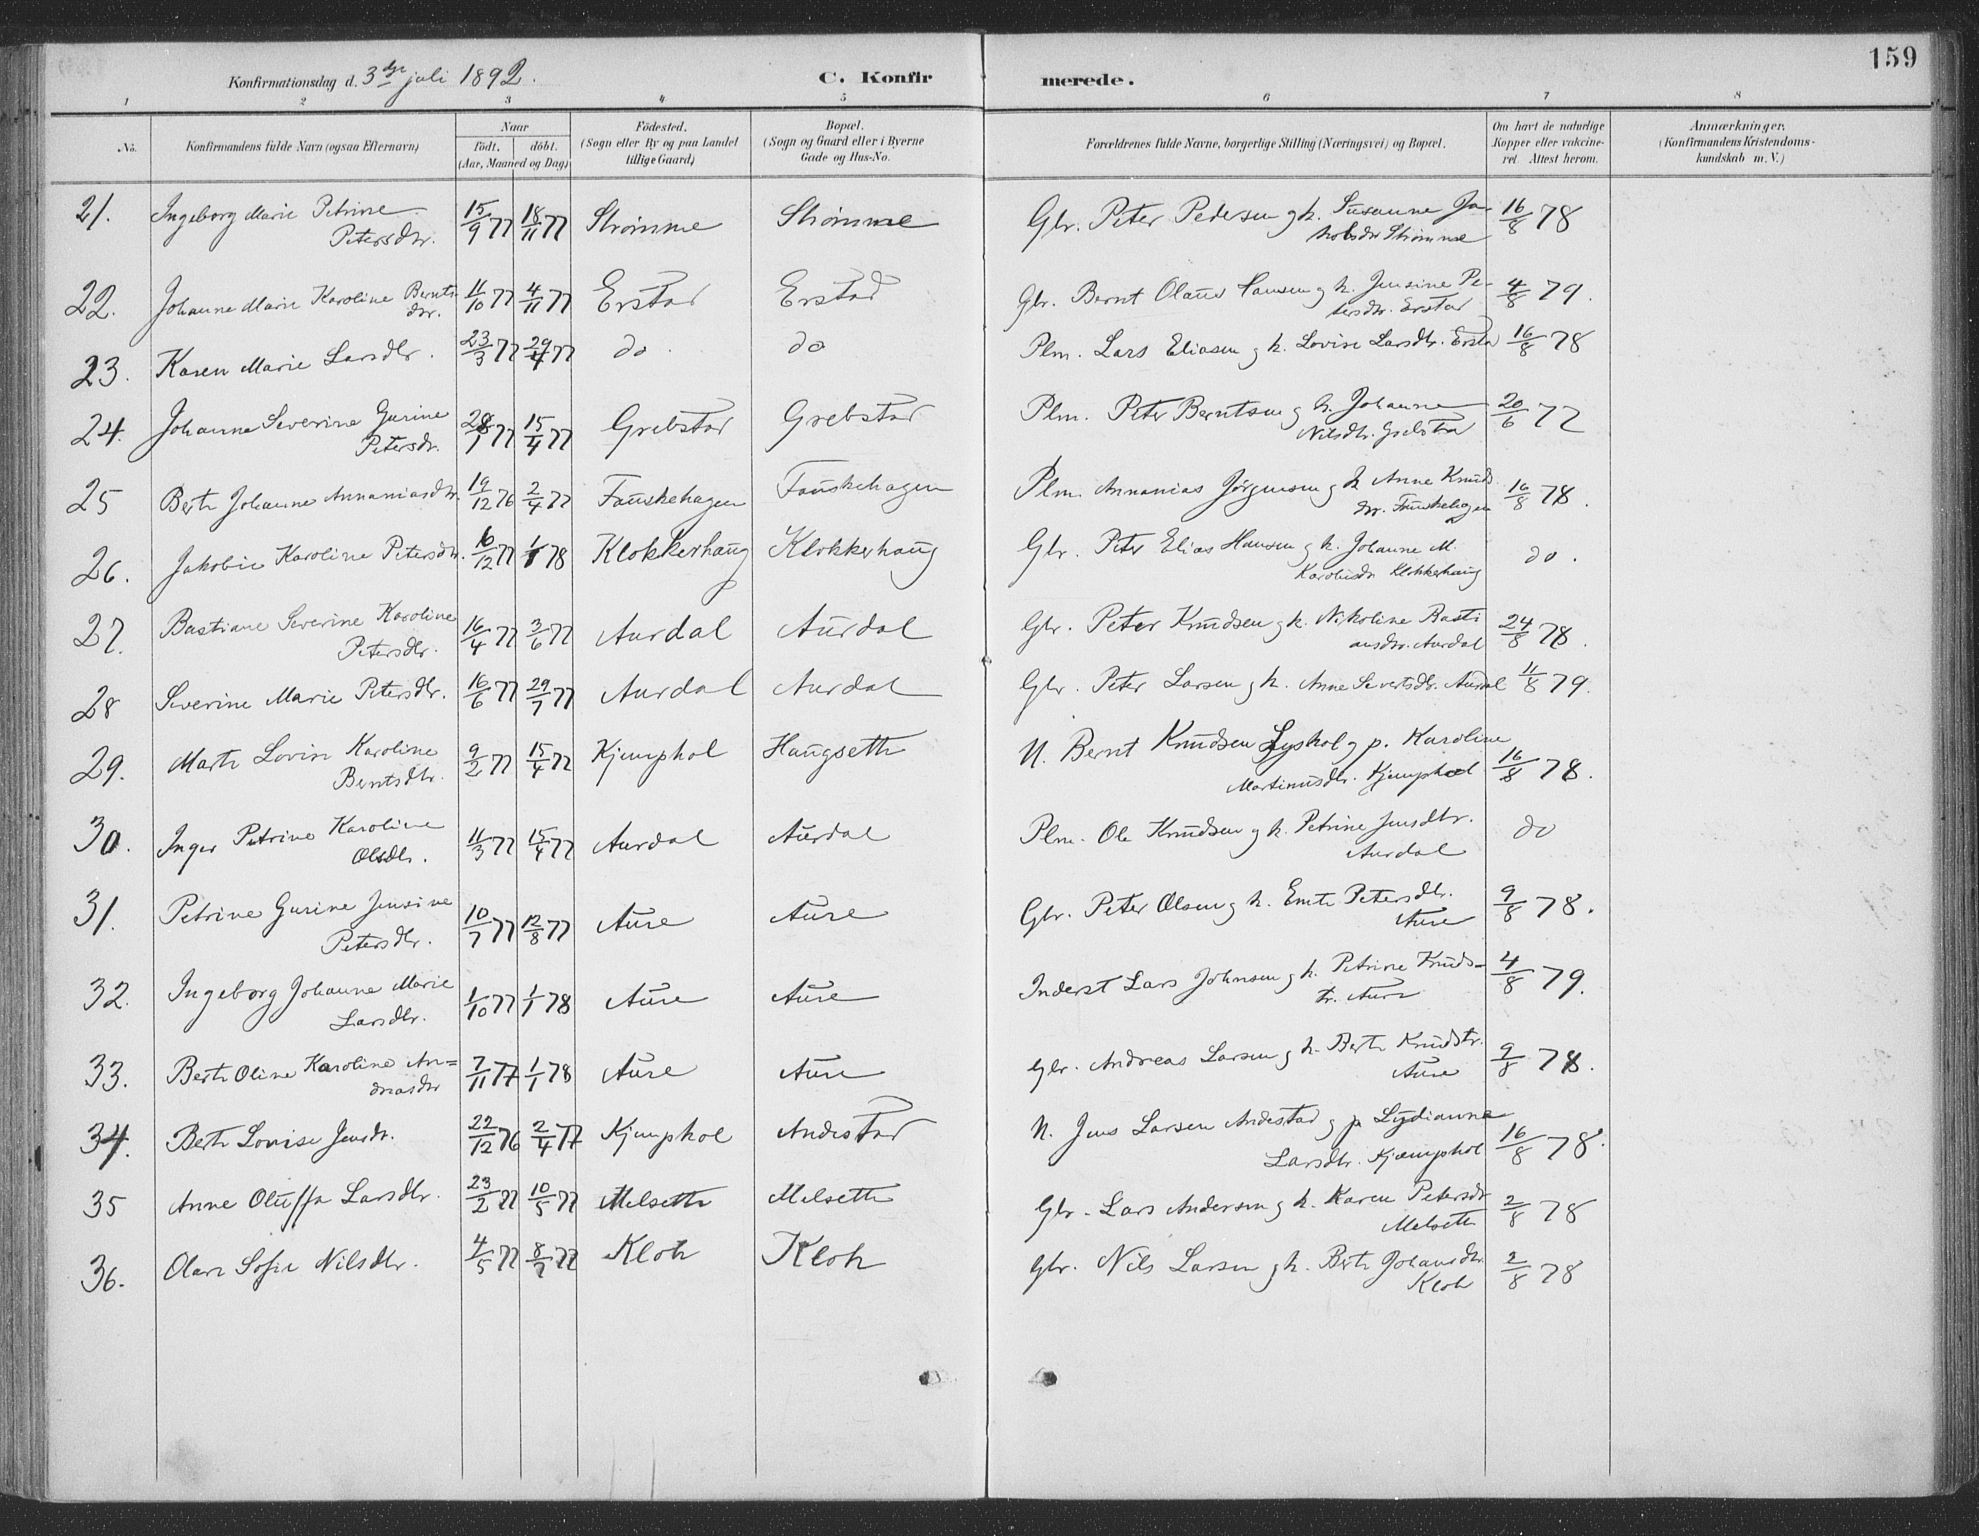 159
Konfirmationsdag d. 3die juli 1892.
C. Konfirmerede.
1 2 3 4 5 6 7 8
No.
Konfirmandens fulde Navn (ogsaa Efternavn)
Naar
födt. döbt.
(Aar, Maaned og Dag)
Födested.
(Sogn eller By og paa Landet
tillige Gaard)
Bopæl.
(Sogn og Gaard eller i Byerne
Gade og Hus-No.
Forældrenes fulde Navne, borgerlige Stilling (Næringsvei) og Bopæl.
Om havt de naturlige
Kopper eller vaccine-
ret. Attest herom.
Anmærkninger.
(Konfirmandens Kristendoms-
kundskab m. V.)
21. Ingeborg Marie Petrine 15/9 77 18/11 77 Strömme Strömme Gbr. Peter Pedersen g h. Susanne Ja- 16/8 78
Petersdtr. kobsdtr Strömme
22. Johanne Marie Karoline Bernts- 11/10 77 4/11 77 Erstad Erstad Gbr. Bernt Olaus Hansen g h. Jensine Pe- 4/8 79.
dtr. tersdtr. Erstad
23. Karen Marie Larsdtr. 23/3 77 29/4 77 do do Plm. Lars Eliasen g h. Lovise Larsdtr. Ersta 16/8 78
24. Johanne Severine Gurine 28/1 77 15/4 77 Grebstad Grebstad Plm. Peter Berntsen g h. Johanne 20/6 77
Petersdr. Nilsdtr. Grebsta
25 Berte Johanne Annaniasdtr. 19/12 76 2/4 77 Fauskehagen Fauskehagen Plm. Annanias Jörgensen g h Anne Knuds 16/8 78.
dtr. Fauskehagen
26. Jakobie Karoline Petersdtr. 16/12 77 1/1 78 Klokkerhaug Klokkerhaug Gbr. Peter Elias Hansen g h. Johanne M. do.
Karolusdr Klokkerhaug
27. Bastiane Severine Karoline 16/4 77 3/6 77 Aurdal Aurdal Gbr. Peter Knudsen g h. Nikoline Basti 24/8 78.
Petersdtr. ansdtr. Aurdal
28 Severine Marie Petersdtr. 16/6 77 29/7 77 Aurdal Aurdal Gbr. Peter Larsen g h. Anne Sivertsdtr. Aurdal 11/8 79.
29. Marte Lovise Karoline 9/2 77 15/4 77 Kjemphol Haugsette U. Bernt Knudsen Lyshol g p. Karoline
Berntsdtr. Martinusdtr. Kjemphol 16/8 78.
30. Inger Petrine Karoline 11/3 77 15/4 77 Aurdal Aurdal Plm. Ole Knudsen g h. Petrine Jensdtr. do
Olsdtr. Aurdal
31. Petrine Gurine Jensine 10/7 77 12/8 77 Aure Aure Gbr. Peter Olsen g h. Emte Petersdtr. 9/8 78.
Petersdtr. Aure
32. Ingeborg Johanne Marie 1/10 77 1/1 78 Aure Aure Inderst Lars Johnsen g h. Petrine Knuds- 4/8 79.
Larsdtr. tr. Aure
33. Berte Oline Karoline An= 7/11 77 1/1 78 Aure Aure Gbr. Andreas Larsen g h. Berte Knudstr. 9/8 78.
dreasdtr Aure
34. Berte Lovise Jensdr. 22/12 76 2/4 77 Kjemphol Andestad U. Jens Larsen Andestad g p Lydianna 16/8 78.
Larsdtr. Kjæmphol
35 Anne Oluffa Larsdtr. 23/2 77 10/5 77 Melsette Melsette Gbr. Lars Andersen g h. Karen Petersdr 2/8 78
Melsette
36. Olave Sofie Nilsdtr. 4/5 77 8/7 77 Klok Klok Gbr. Nils Larsen g h. Berte Johansdtr. 2/8 78
Klok